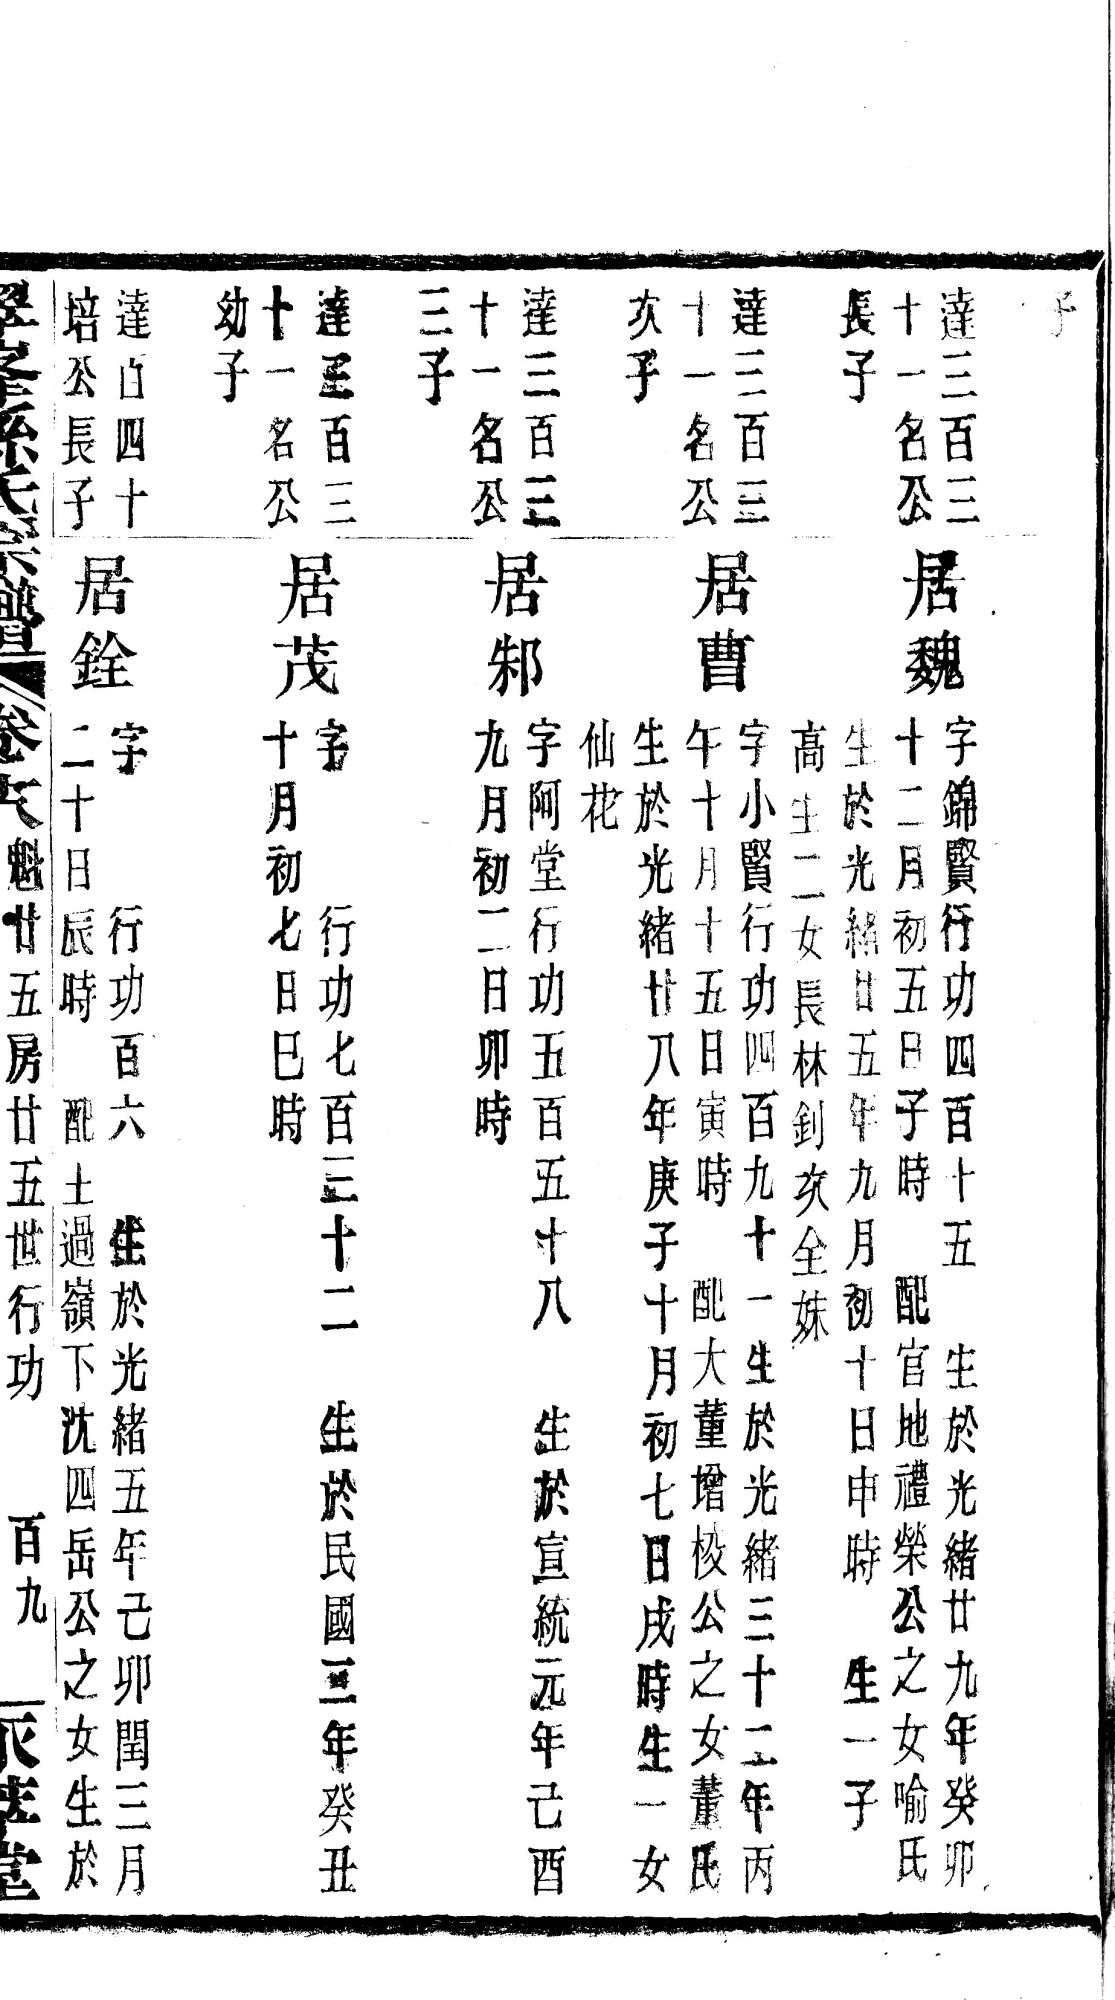 子
達三百三
十一名公
長子
居魏
字錦賢行功四百十五 生於光緒廿九年癸卯
十二月初五日子時 配官地禮榮公之女喻氏
生於光緒廿五年九月初十日申時 生一子
高生二女長林釗次全妹
達三百三
十一名公
次子
居曹
字小賢行功四百九十一生於光緒三十二年丙
午十月十五日寅時 配大董增校公之女董氏
生於光緒廿八年庚子十月初七日戌時生一女
仙花
達三百三
十一名公
三子
居邾
字阿堂行功五百五十八 生於宣統元年己酉
九月初二日卯時
達三百三
十一名公
幼子
居茂
字 行功七百三十二 生於民國三年癸丑
十月初七日巳時
達百四十
培公長子
居銓
字 行功百六 生於光緒五年己卯閏三月
二十日辰時 配土過嶺下沈四岳公之女生於
孫氏宗譜 卷 魁廿五房廿五世行功 百九 堂